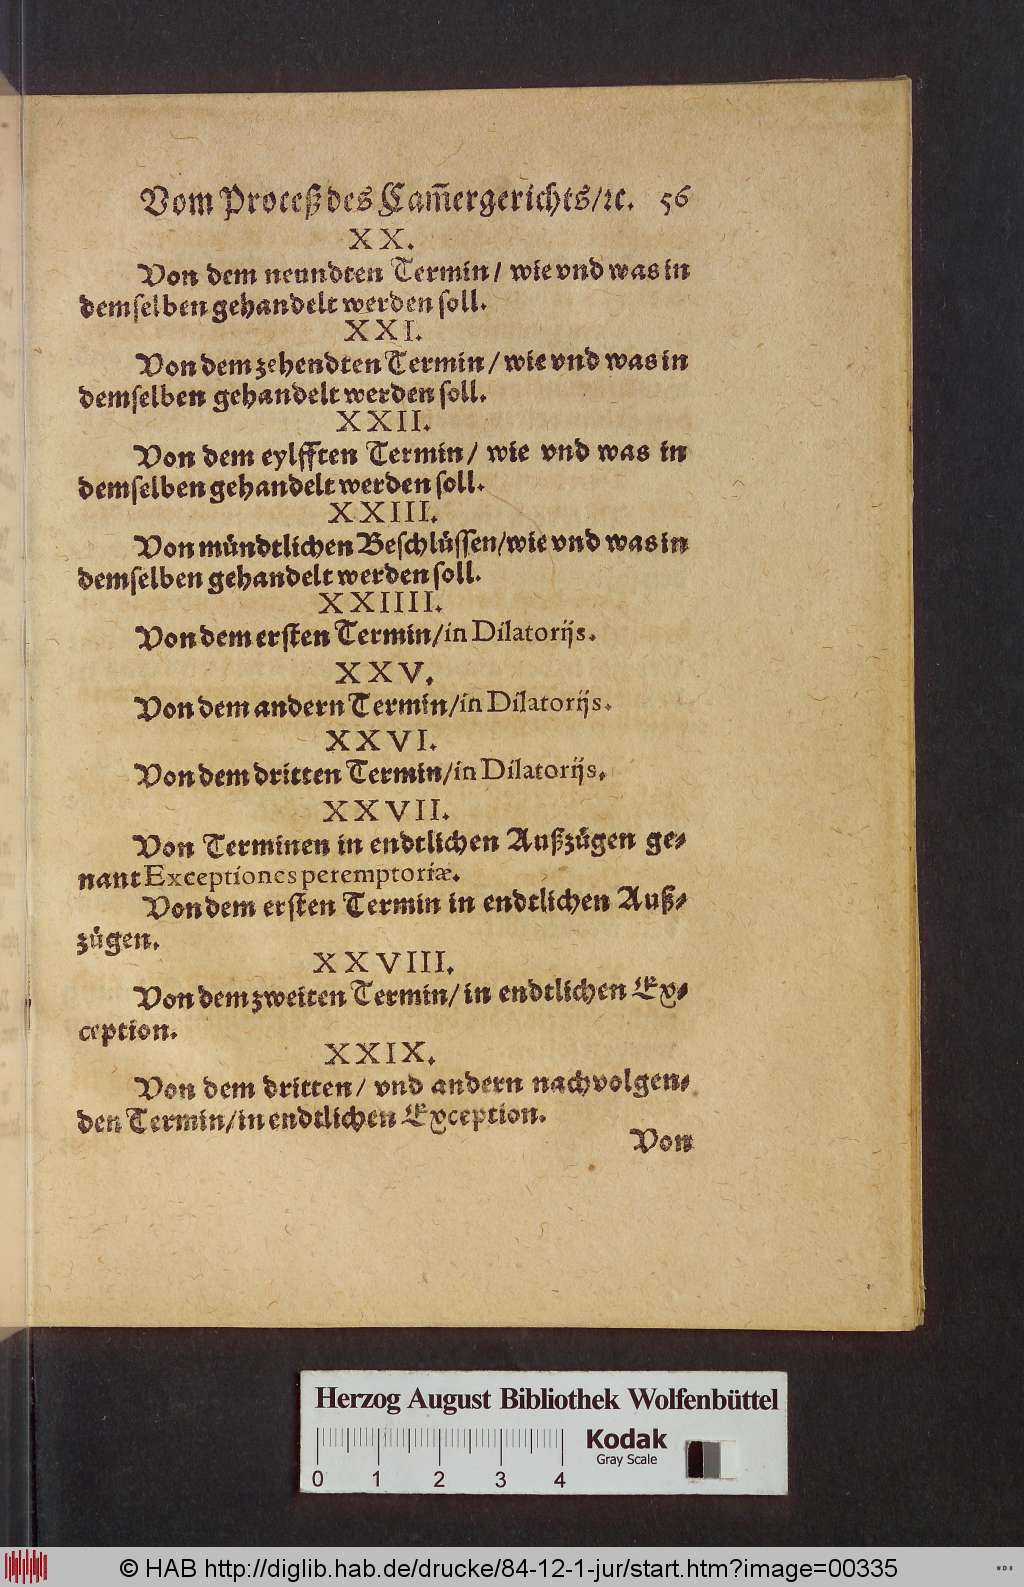 Vom Proceß des Cam̃ergerichts/ꝛc. 56
XX.
Von dem neundten Termin/ wie vnd was in
demselben gehandelt werden soll.
XXI.
Von dem zehendten Termin/ wie vnd was in
demselben gehandelt werden soll.
XXII.
Von dem eylfften Termin/ wie vnd was in
demselben gehandelt werden soll.
XXIII.
Von mündtlichen Beschlüssen/wie vnd was in
demselben gehandelt werden soll.
XXIIII.
Von dem ersten Termin/in Dilatorijs.
XXV.
Von dem andern Termin/in Dilatorijs.
XXVI.
Von dem dritten Termin/in Dilatorijs.
XXVII.
Von Terminen in endtlichen Außzügen ge-
nant Exceptiones peremptoriæ.
Von dem ersten Termin in endtlichen Auß-
zügen.
XXVIII.
Von dem zweiten Termin/ in endtlichen Ex-
ception.
XXIX.
Von dem dritten/ vnd andern nachvolgen-
den Termin/in endtlichen Exception.
Von
Herzog August Bibliothek Wolfenbüttel
Kodak
Gray Scale
0 1 2 3 4
© HAB http://diglib.hab.de/drucke/84-12-1-jur/start.htm?image=00335